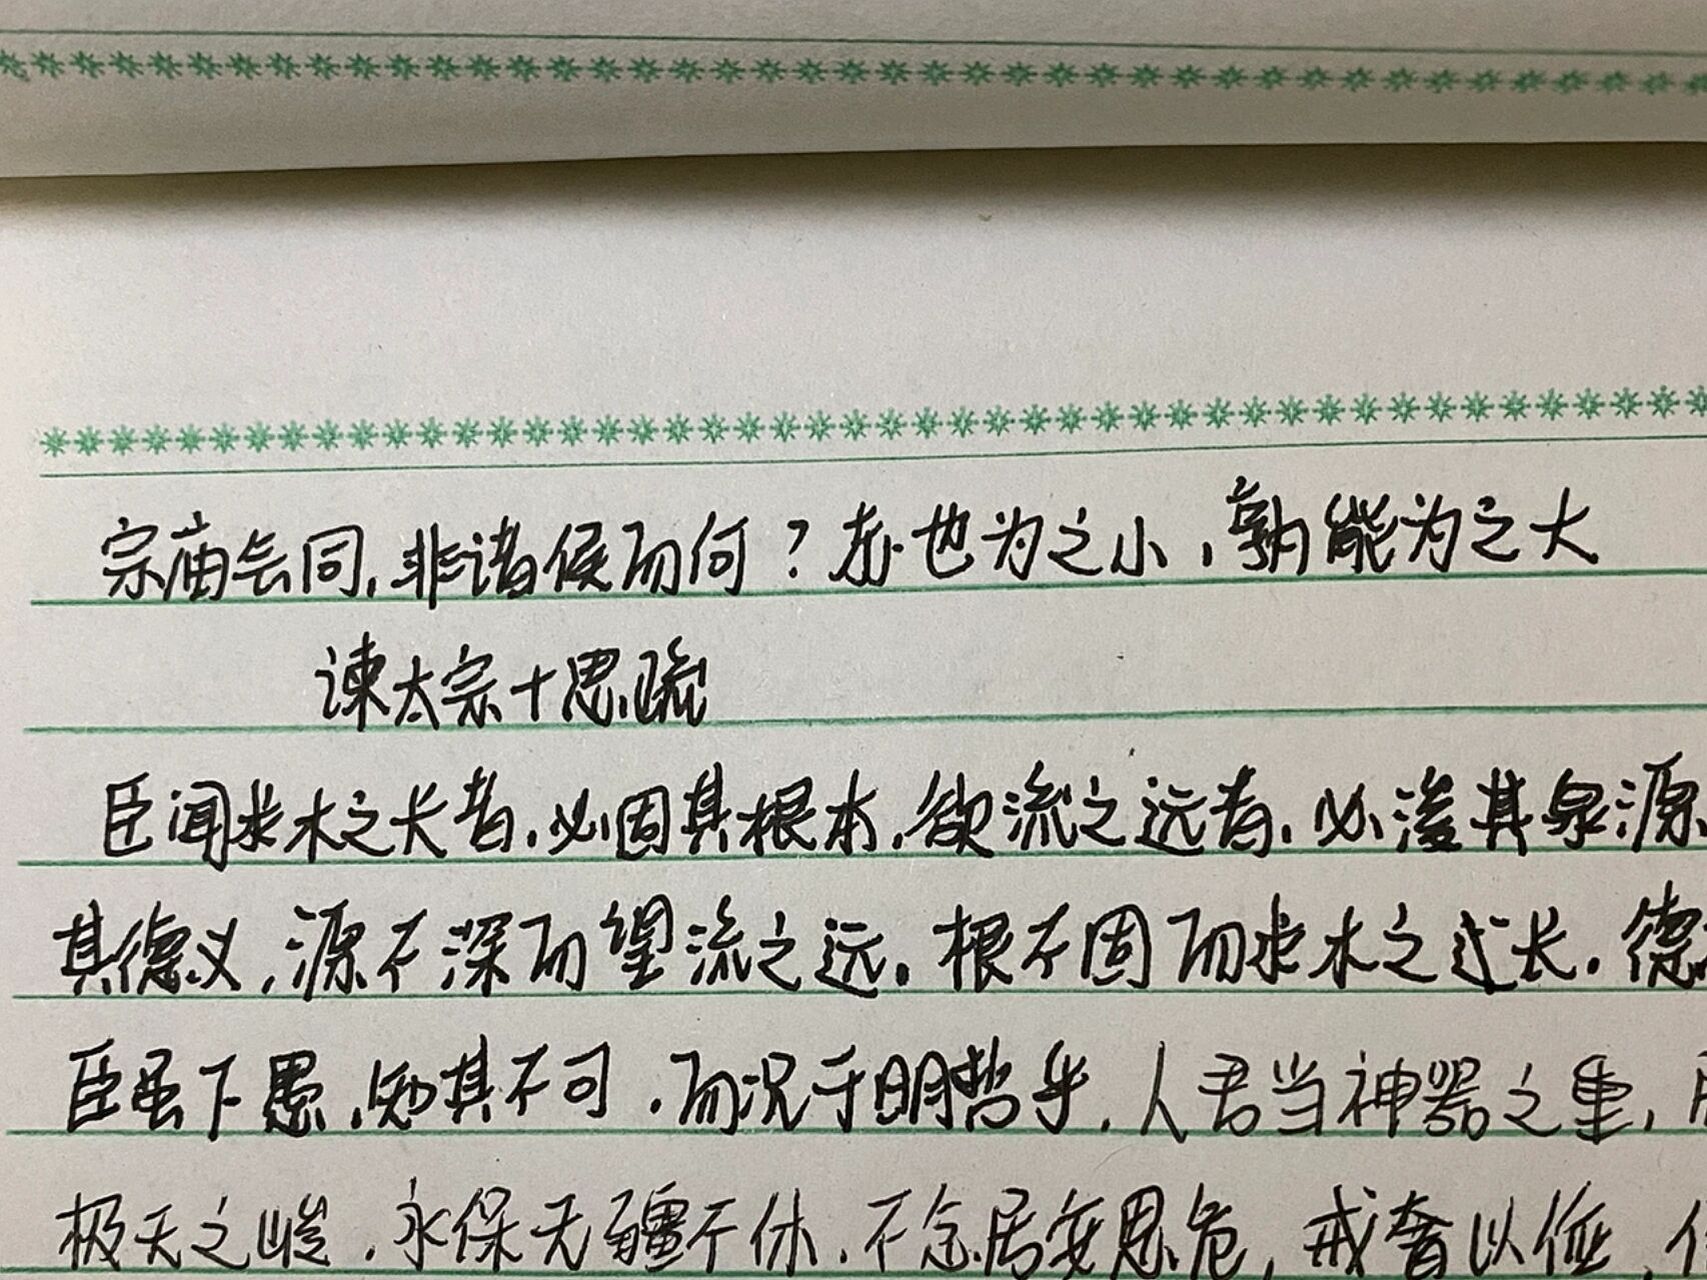 宗庙会同,非诸候而何?赤也为之小,孰能为之大
谏太宗十思疏
臣闻求木之长者,必固其根本,欲流之远者,必浚其泉源
其德义,源不深而望流之远。根不固而求木之长。德
臣虽下愚,知其不可,而况于明哲乎,人君当神器之重,
极天之峻,永保无疆之休,不念居安思危,戒奢以俭,